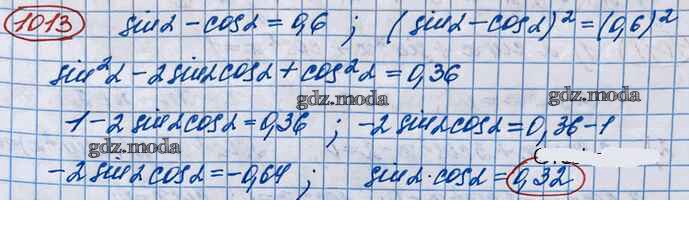 1013 sinα - cosα = 0,6 ; (sinα - cosα)² = (0,6)²
sin²α - 2sinαcosα + cos²α = 0,36
gdz.moda gdz.moda
1 - 2sinαcosα = 0,36 ; -2sinαcosα = 0,36 - 1
gdz.moda
-2sinαcosα = -0,64 ; sinα·cosα = 0,32